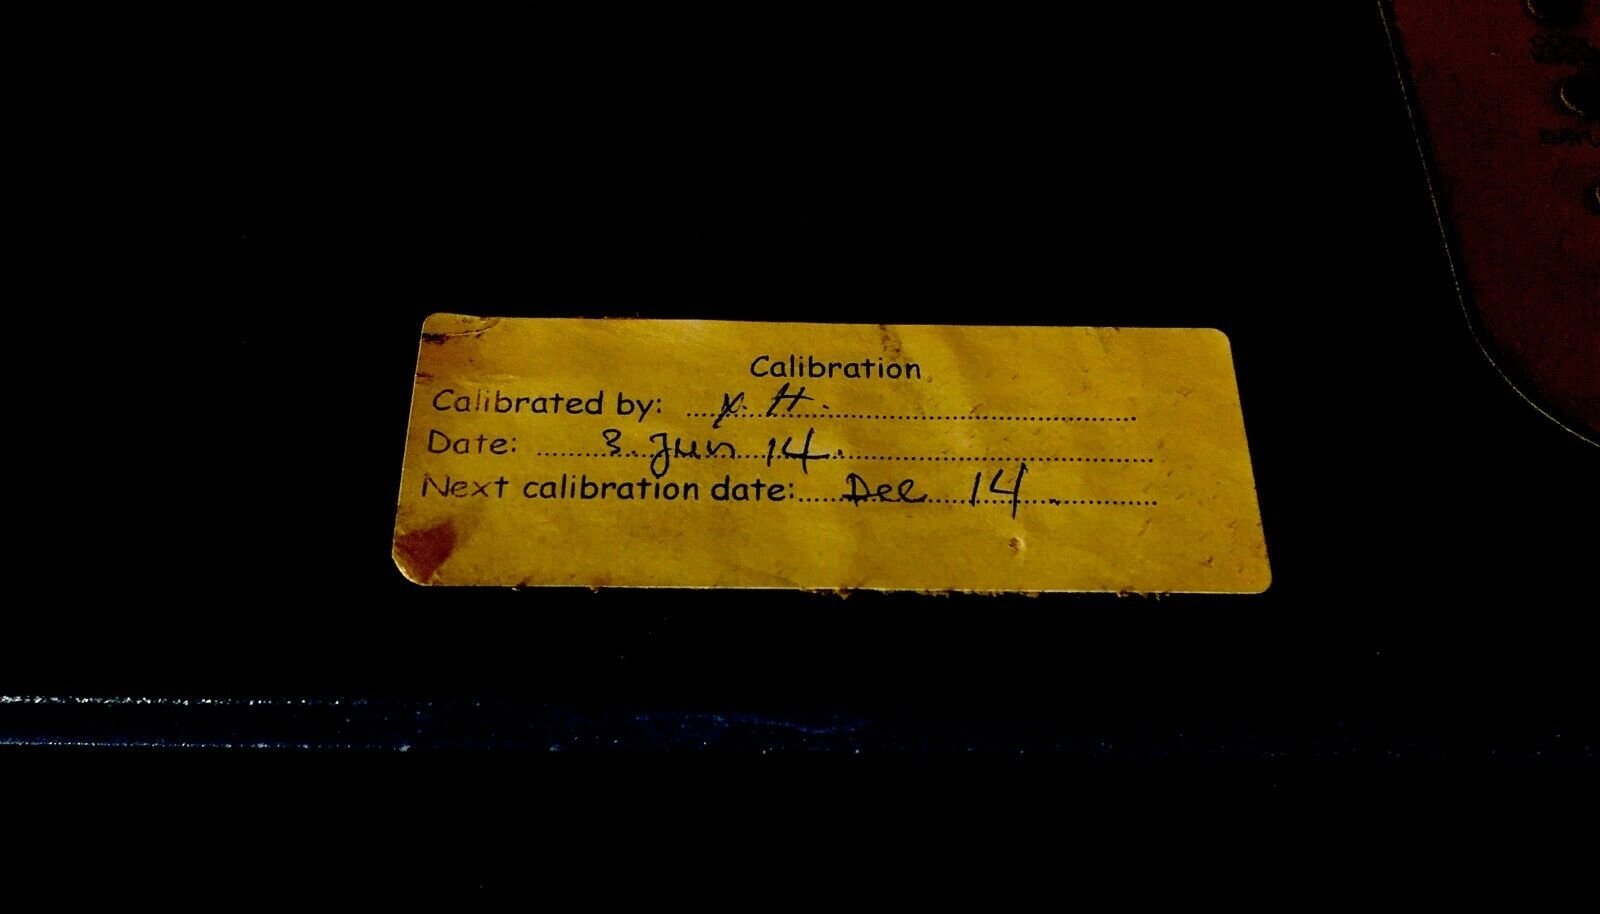 Calibration
Calibrated by: ... H.
Date: 3. Jun 14.
Next calibration date: Dec 14.